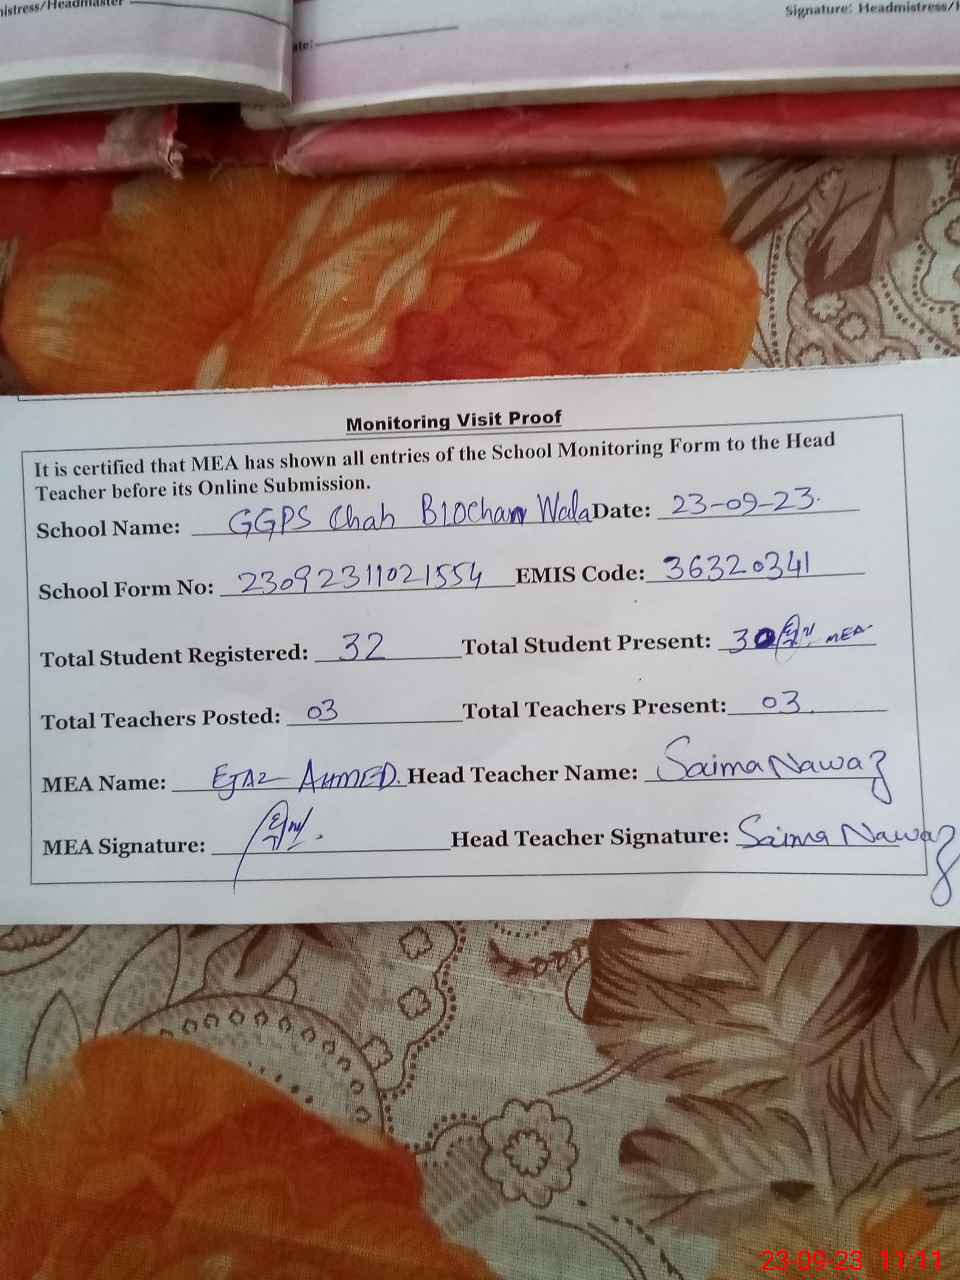 mistress/Headmaster
Signature: Headmistress/H
ate:
Monitoring Visit Proof
It is certified that MEA has shown all entries of the School Monitoring Form to the Head
Teacher before its Online Submission.
School Name: GGPS Chah BlOchan Wala Date: 23-09-23.
School Form No: 23092311021554 EMIS Code: 36320341
Total Student Registered: 32 Total Student Present: 30 MEA
Total Teachers Posted: 03 Total Teachers Present: 03
MEA Name: EJAZ AHMED. Head Teacher Name: Saima Nawaz
MEA Signature: Head Teacher Signature: Saima Nawaz
23-09-23 11:11